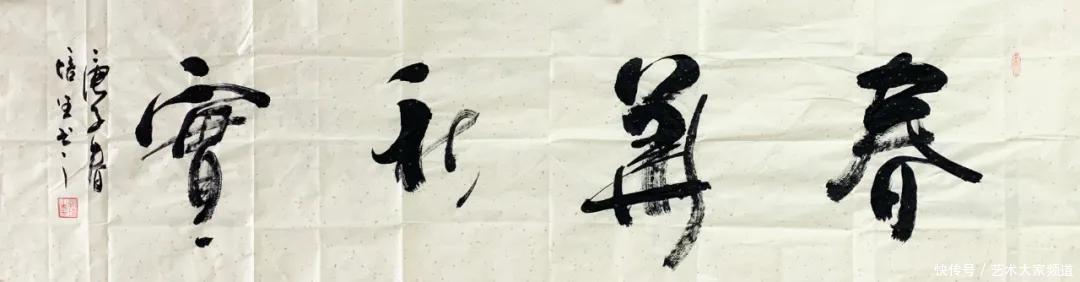 春華秋實
庚子春
培生书
快传号 / 艺术大家频道